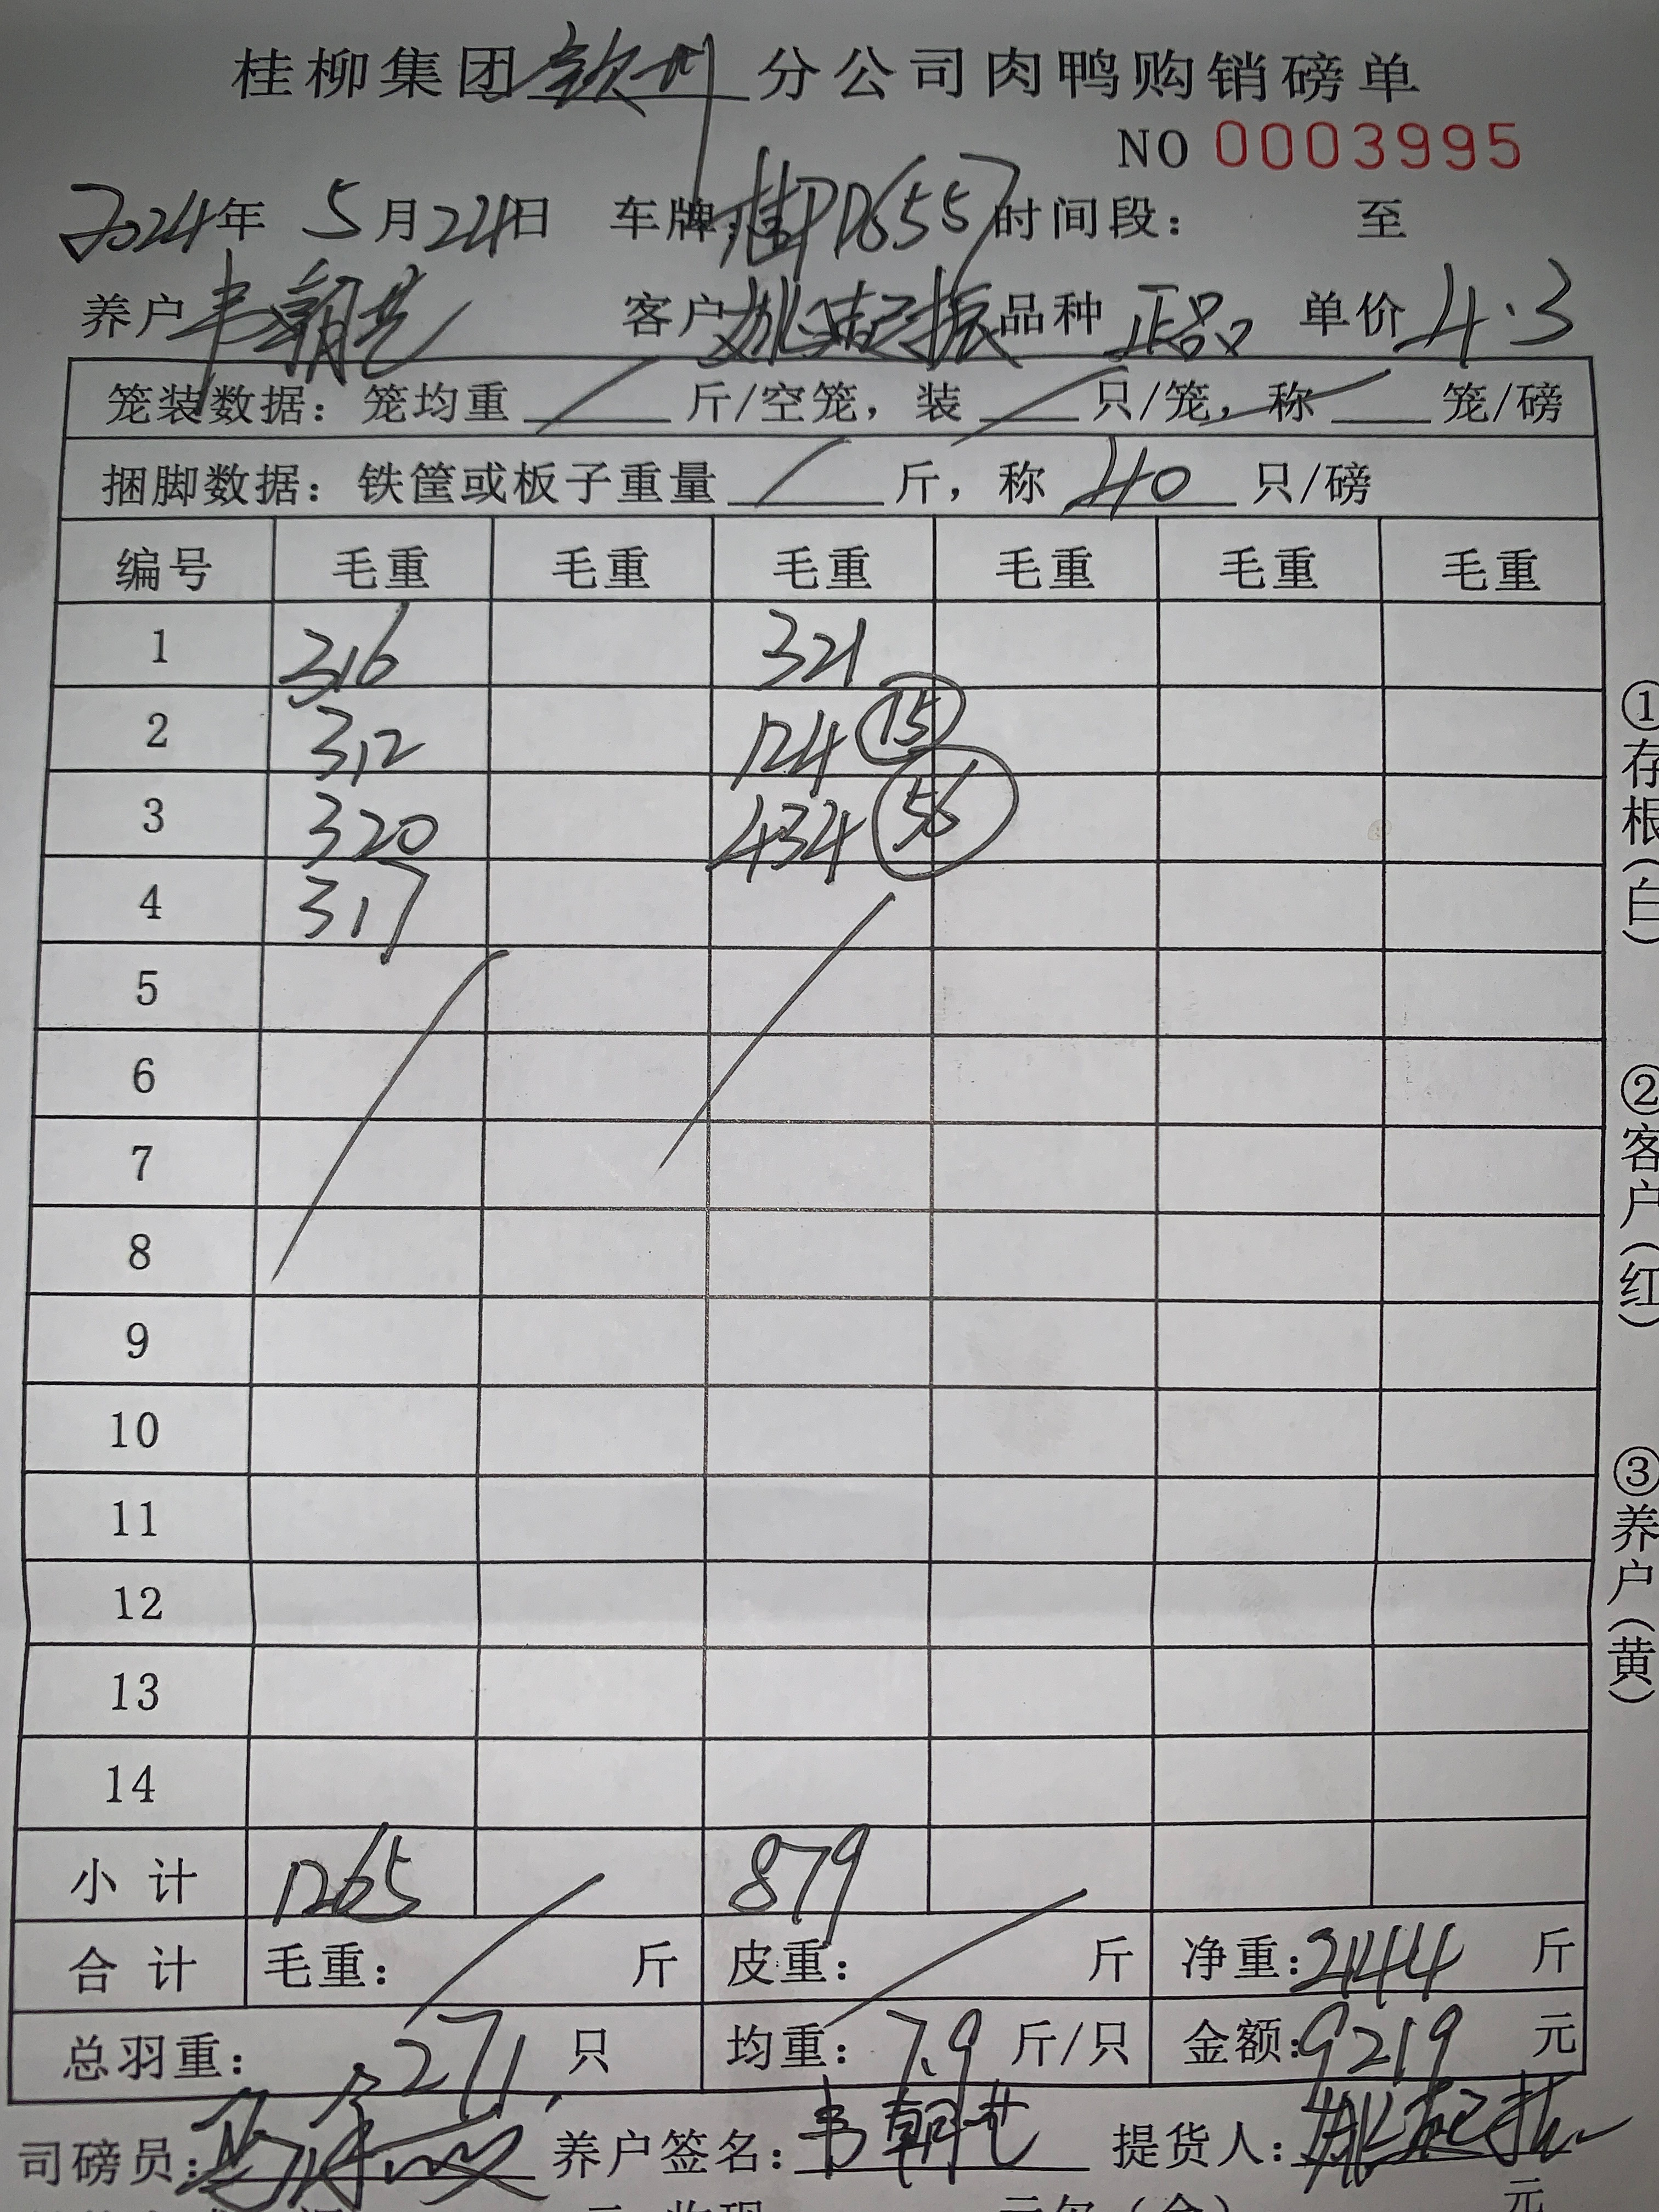 桂柳集团钦州分公司肉鸭购销磅单
NO 0003995
2024年 5月24日 车牌:桂PD6557 时间段: 至
养户 韦朝艺 客户 姚起振 品种 正品 单价 4.3
笼装数据: 笼均重 斤/空笼, 装 只/笼, 称 笼/磅
捆脚数据: 铁筐或板子重量 斤, 称 40 只/磅
编号 毛重 毛重 毛重 毛重 毛重 毛重
1 316 321
2 312 124 15
3 320 434 56
4 317
5
6
7
8
9
10
11
12
13
14
小计 1265 879
合计 毛重: 斤 皮重: 斤 净重:2144 斤
总羽重: 271 只 均重: 7.9 斤/只 金额:9219 元
司磅员: 养户签名:韦朝艺 提货人:姚起振
元
①存根(白)
②客户(红)
③养户(黄)